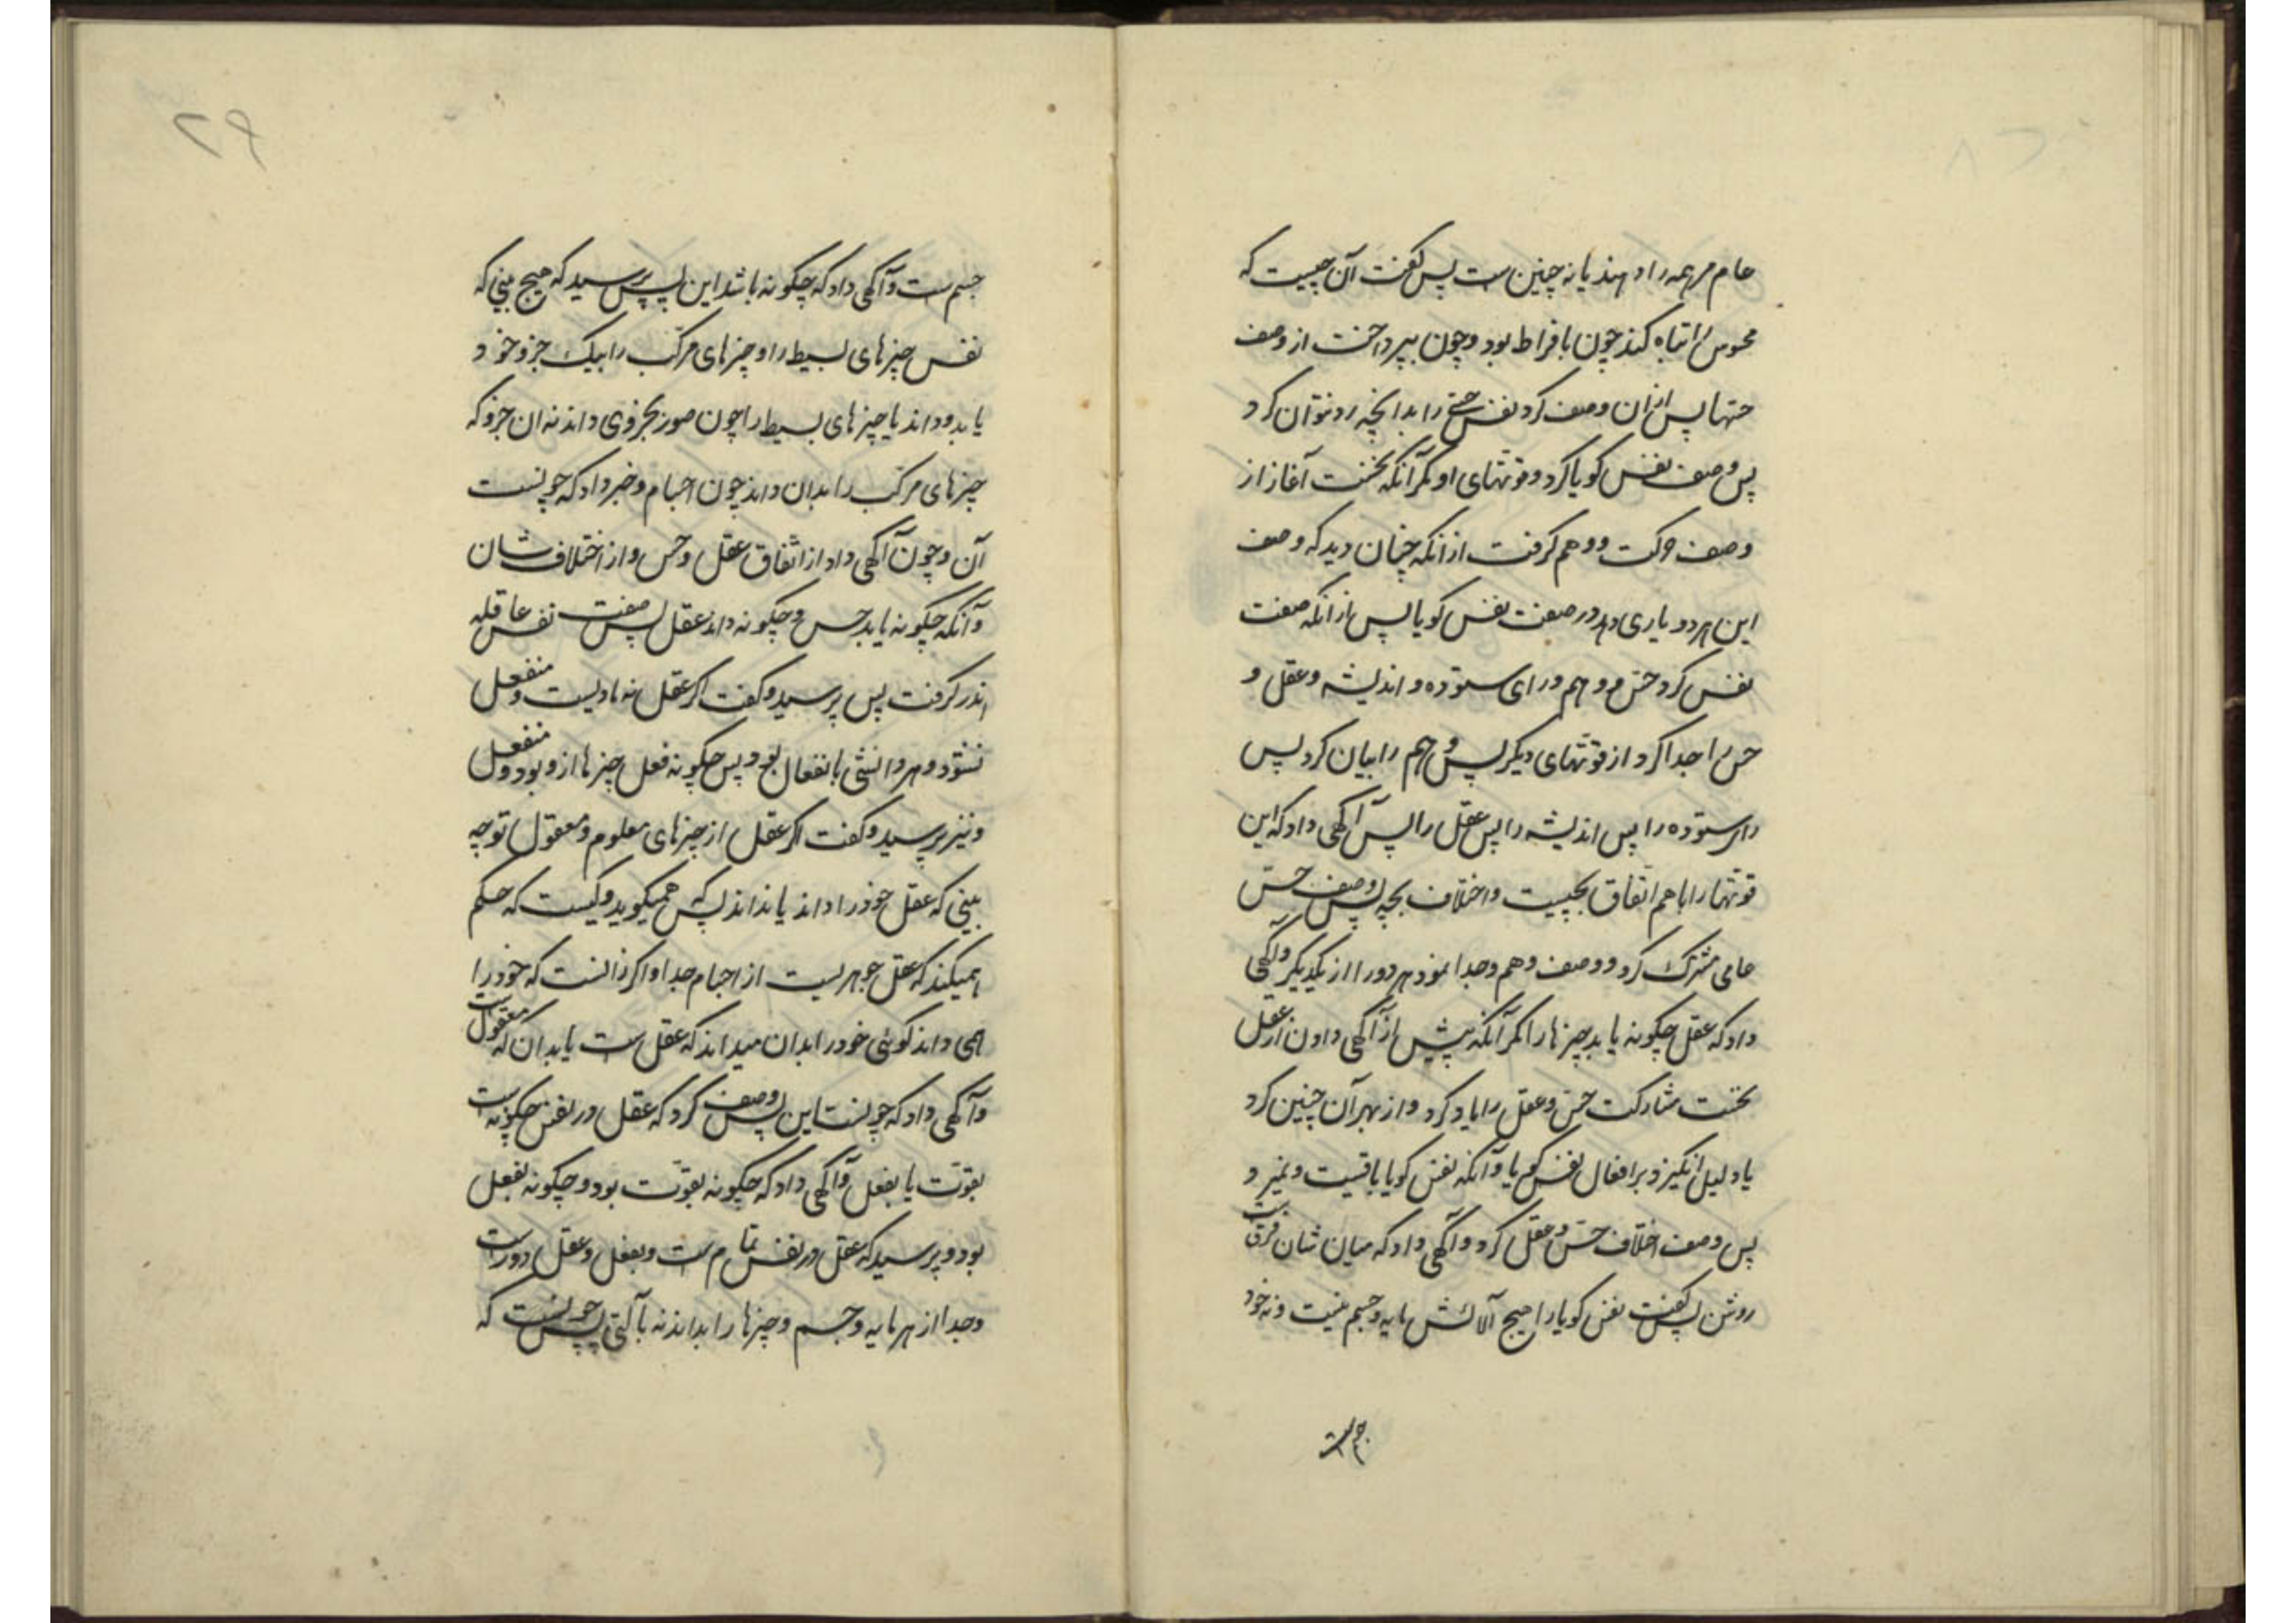 عام مرهمه را دهند یا نه چنین ست پس گفت آن چیست که
محسوس را تباه کند چون بافراط بود و چون بپرداخت از وصف
حسها پس ازان وصف کرد نفس حسی را بدانچه رد نتوان کرد
پس وصف نفس کویا کرد و قوتهای او مکر آنکه نخست آغاز از
وصف حرکت و وهم کرفت از انکه چنان دید که وصف
این هر دو یاری دهد در صفت نفس کویا پس از انکه صفت
نفس کرد حس و وهم و رای ستوده و اندیشه و عقل و
حس را جدا کرد از قوتهای دیکر پس وهم را بیان کرد پس
رای ستوده را پس اندیشه را پس عقل را پس آکهی داد که این
قوتها را با هم اتفاق بچیست و اختلاف بچه پس وصف حس
عامی مشترک کرد و وصف وهم و جدا نمود هر دو را از یکدیکر و آکهی
داد که عقل چکونه یابد چیزها را مکر آنکه پیش از آکهی دادن از عقل
نخست مشارکت حس و عقل را یاد کرد و از بهر آن چنین کرد
یا دلیل انکیزد بر افعال نفس کویا و آنکه نفس کویا باقیست و نمیرد و
پس وصف اختلاف حس و عقل کرد و آکهی داد که میان شان فرقیست
روشن پس کفت نفس کویا را هیچ آلائش مایه و جسم نیست و نه خود
جسم ست
۲۹
جسم ست و آکهی داد که چکونه باشد این پس پرسید که هیچ بینی که
نفس چیزهای بسیط را و چیزهای مرکب را بیک جزو خود
یابد و داند یا چیزهای بسیط را چون صور بجزوی داند نه ان جزو که
چیزهای مرکب را بدان داند چون اجسام و خبر داد که چونست
آن و چون آکهی داد از اتفاق عقل و حس و از اختلاف شان
و آنکه چکونه یابد حس و چکونه داند عقل پس صفت نفس عاقله
اندر کرفت پس پرسید و کفت اکر عقل نه مادیست و منفعل
نشود و هر دانشی بانفعال بود پس چکونه فعل چیزها ازو بود و منفعل
و نیز پرسید و کفت اکر عقل از چیزهای معلوم و معقول توجه
بینی که عقل خود را داند یا نداند پس که همیکوید و کیست که حکم
همیکند که عقل جوهریست از اجسام جدا و اکر دانست که خود را
همی داند کوئی خود را بدان میداند که عقل ست یا بدان که معقول ست
و آکهی داد که چونست این پس وصف کرد که عقل در نفس چکونه ست
بقوت یا بفعل و آکهی داد که چکونه بقوت بود و چکونه بفعل
بود و پرسید که عقل در نفس تمام ست و بفعل و عقل دور ست
و جدا از هر مایه و جسم و چیزها را بداند نه بآلتی پس چونست که